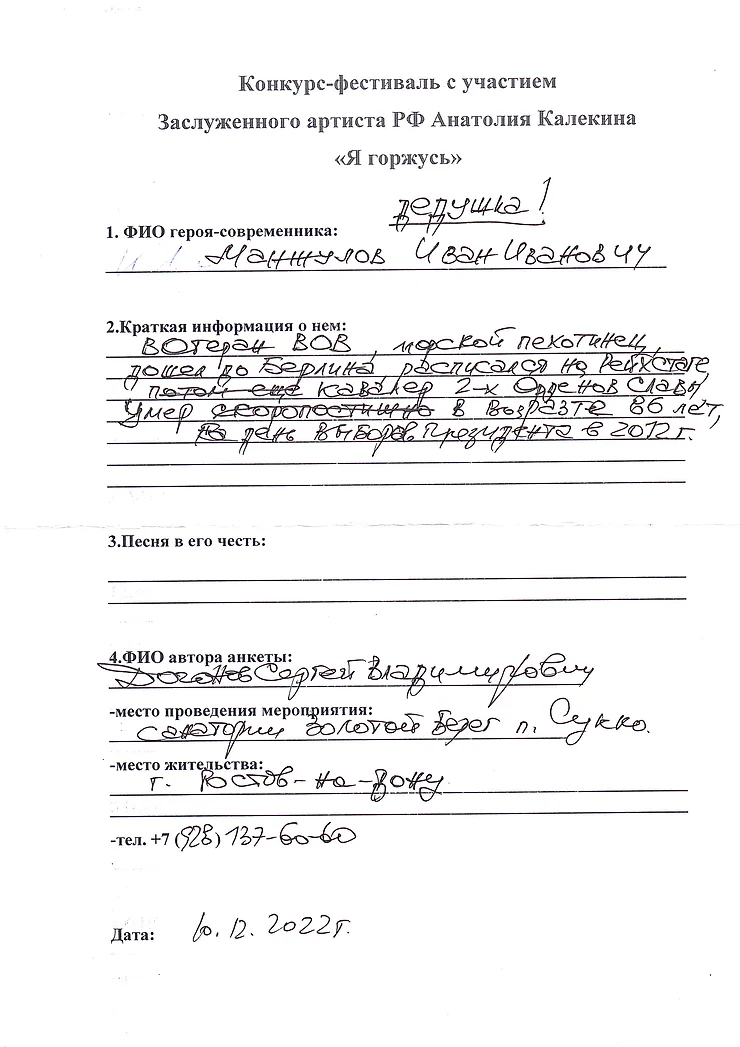 Конкурс-фестиваль с участием
Заслуженного артиста РФ Анатолия Калекина
«Я горжусь»
дедушка!
1. ФИО героя-современника:
Манжулов Иван Иванович
2.Краткая информация о нем:
Вотеран ВОВ, морской пехотинец,
дошел до Берлина, расписался на Рейхстаге,
потом еще кавалер 2-х Орденов Славы
Умер скоропостижно в возрасте 86 лет,
на день выборов Президента в 2012 г.
3.Песня в его честь:
4.ФИО автора анкеты:
Сергей Владимирович
-место проведения мероприятия:
санаторий Золотой Берег п. Сукко.
-место жительства:
г. Ростов-на-Дону
-тел. +7 (928) 137-60-60
Дата: 10.12.2022г.